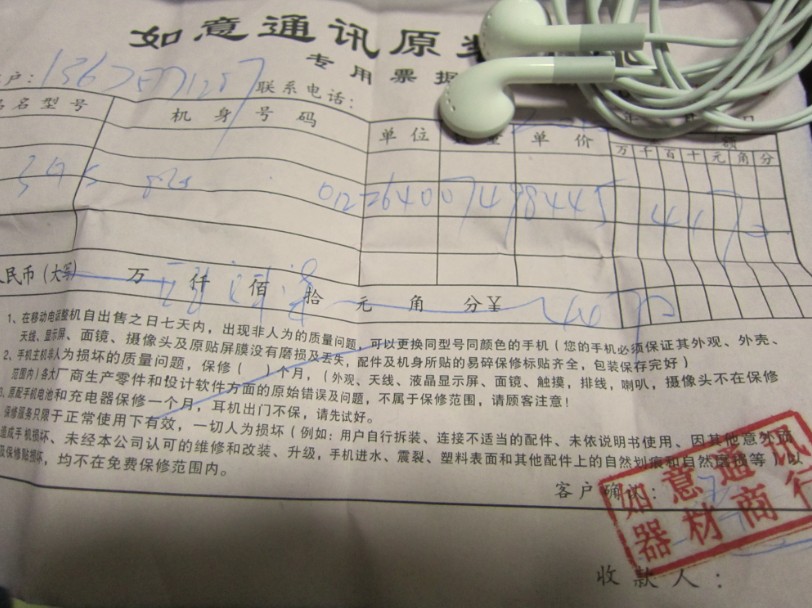 如意通讯原
专用票据
户: 联系电话:
名型号 机身号码 单位 单价 万千百十元角分
012264007498445
人民币(大写) 万 仟 佰 拾 元 角 分¥
1、在移动电话整机自出售之日七天内，出现非人为的质量问题，可以更换同型号同颜色的手机(您的手机必须保证其外观、外壳、
天线、显示屏、面镜、摄像头及原贴屏膜没有磨损及丢失，配件及机身所贴的易碎保修标贴齐全，包装保存完好)
2、手机主机非人为损坏的质量问题，保修( )个月，(外观、天线、液晶显示屏、面镜、触摸，排线，喇叭，摄像头不在保修
范围内)各大厂商生产零件和设计软件方面的原始错误及问题，不属于保修范围，请顾客注意!
3、原配手机电池和充电器保修一个月，耳机出门不保，请先试好。
保修服务只限于正常使用下有效，一切人为损坏(例如：用户自行拆装、连接不适当的配件、未依说明书使用、因其他意外而
造成手机损坏、未经本公司认可的维修和改装、升级，手机进水、震裂、塑料表面和其他配件上的自然划痕和自然磨损等)以
及保修贴损坏，均不在免费保修范围内。
客户确认:
如意通讯
器材商行
收款人: